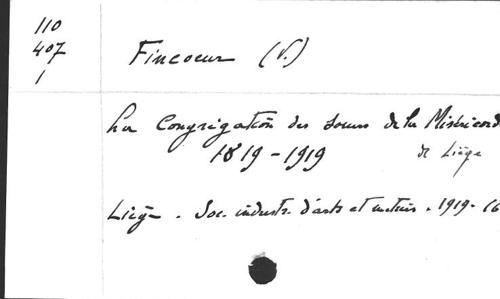 110
407
1
Fincoeur (V.)
La Congrégation des Soeurs de la Miséricord
1819-1919 de Liège
Liège. Soc. industr. d'arts et métiers. 1919. 16